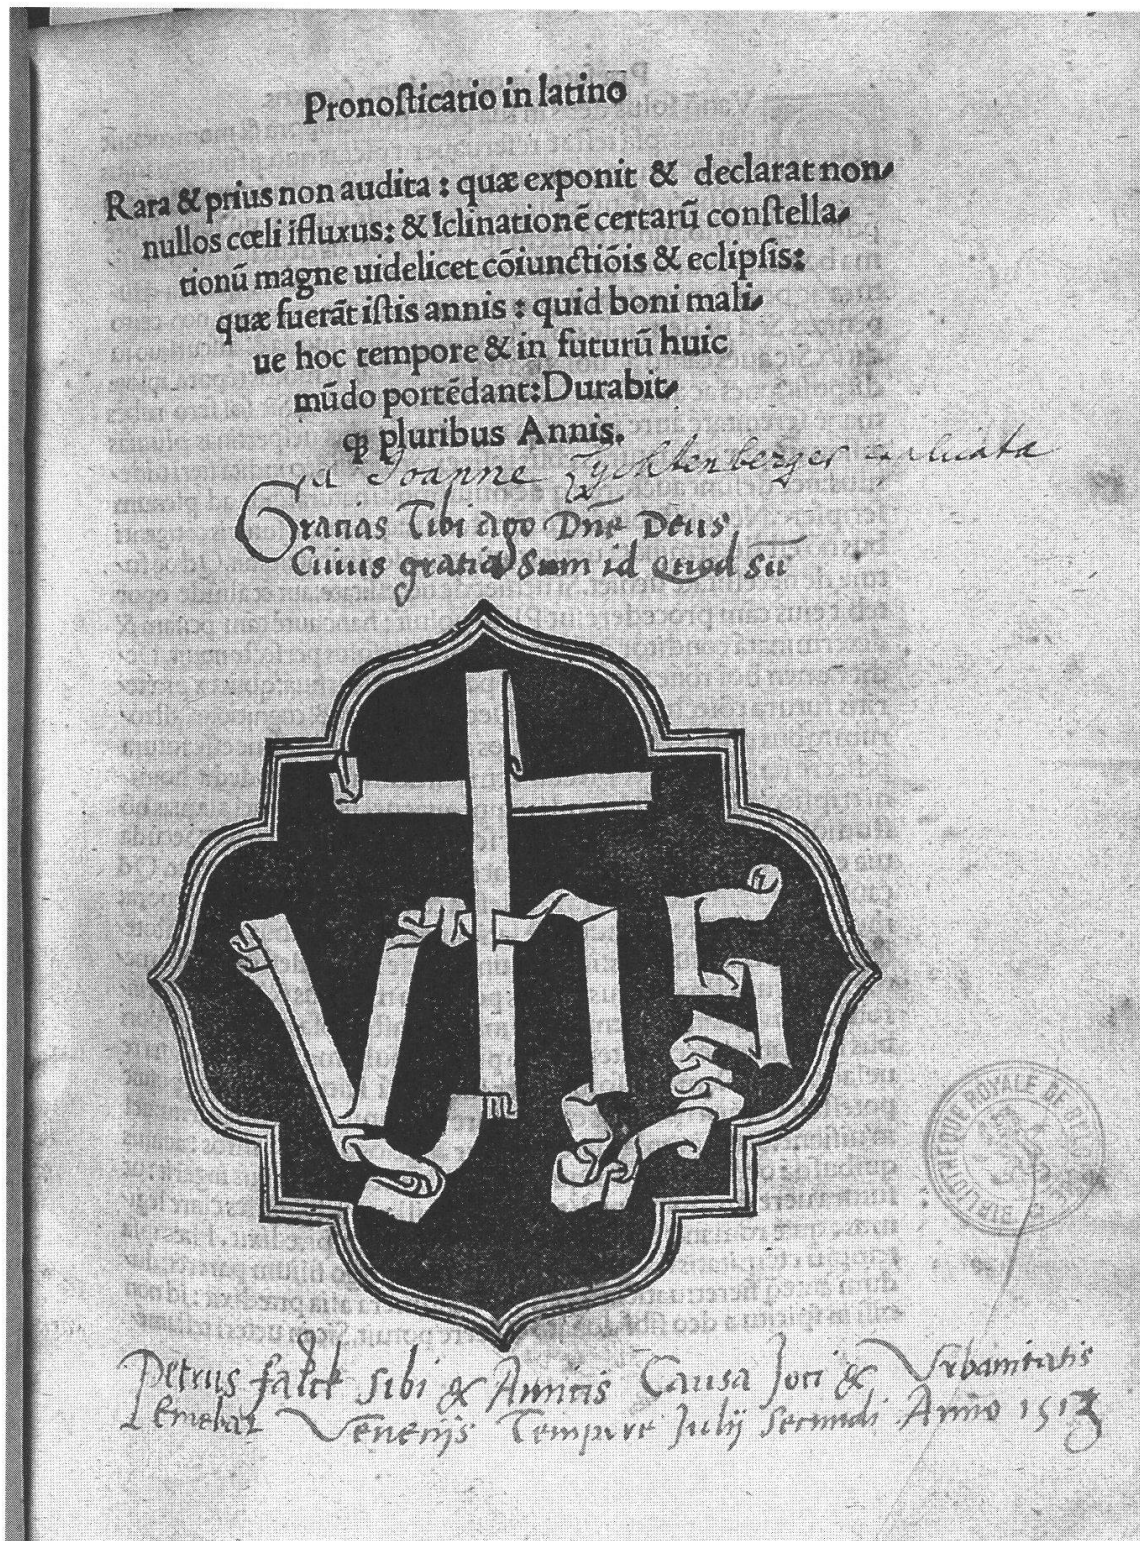 Pronosticatio in latino
Rara & prius non audita : quæ exponit & declarat non⸗
nullos cœli ifluxus: & Iclinationẽ certarũ constella⸗
tionũ magne uidelicet cõiunctiõis & eclipsis:
quæ fuerãt istis annis : quid boni mali⸗
ue hoc tempore & in futurũ huic
mũdo portẽdant: Durabit⸗
ꝙ pluribus Annis.
a Joanne Lychtenberger explicata
Gratias Tibi ago Dñe Deus
Cuius gratia Sum id Quod sũ
VITE
Petrus falck sibi & Amicis Causa Joci & Vrbanitatis
Emebat Venetijs Tempore Julij secundi Anño 1513
BIBLIOTHEQUE ROYALE DE BELGIQUE